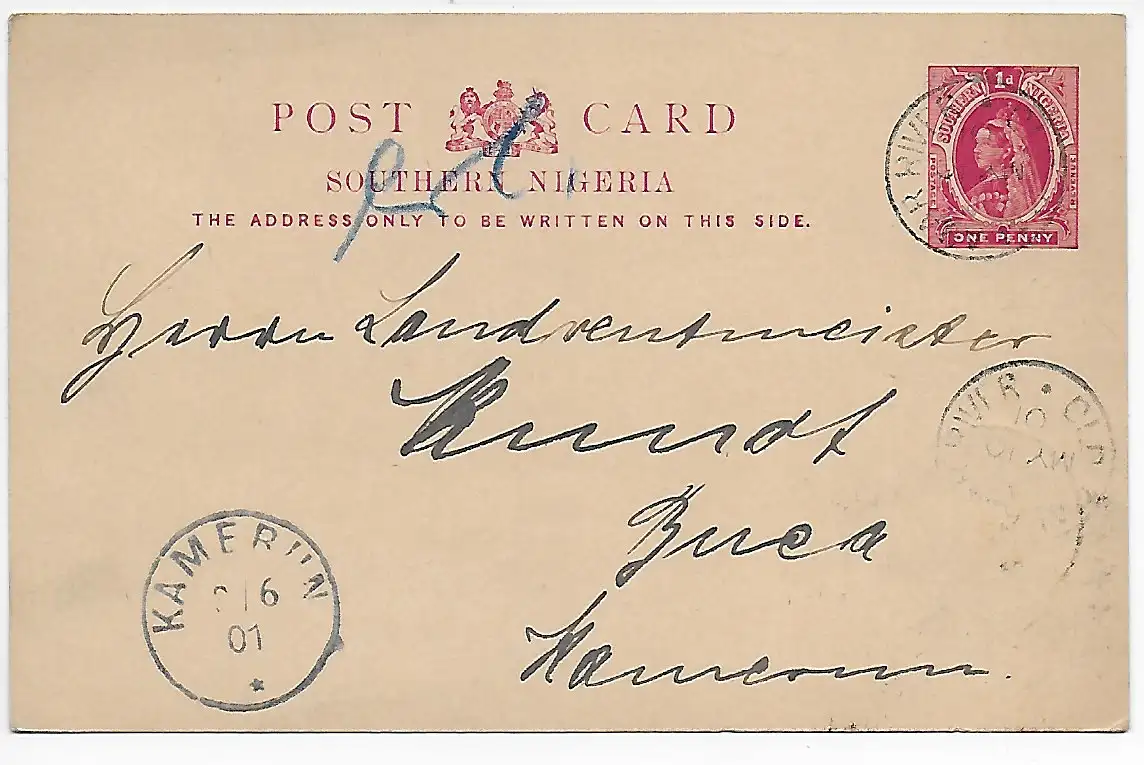 POST CARD
SOUTHERN NIGERIA
THE ADDRESS ONLY TO BE WRITTEN ON THIS SIDE.
1d
SOUTHERN NIGERIA
POSTAGE
ONE PENNY
Herrn Landrentmeister
Kundt
Buea
Kamerun.
RIVER
OLD
01
MY 10
KAMERUN
6
01